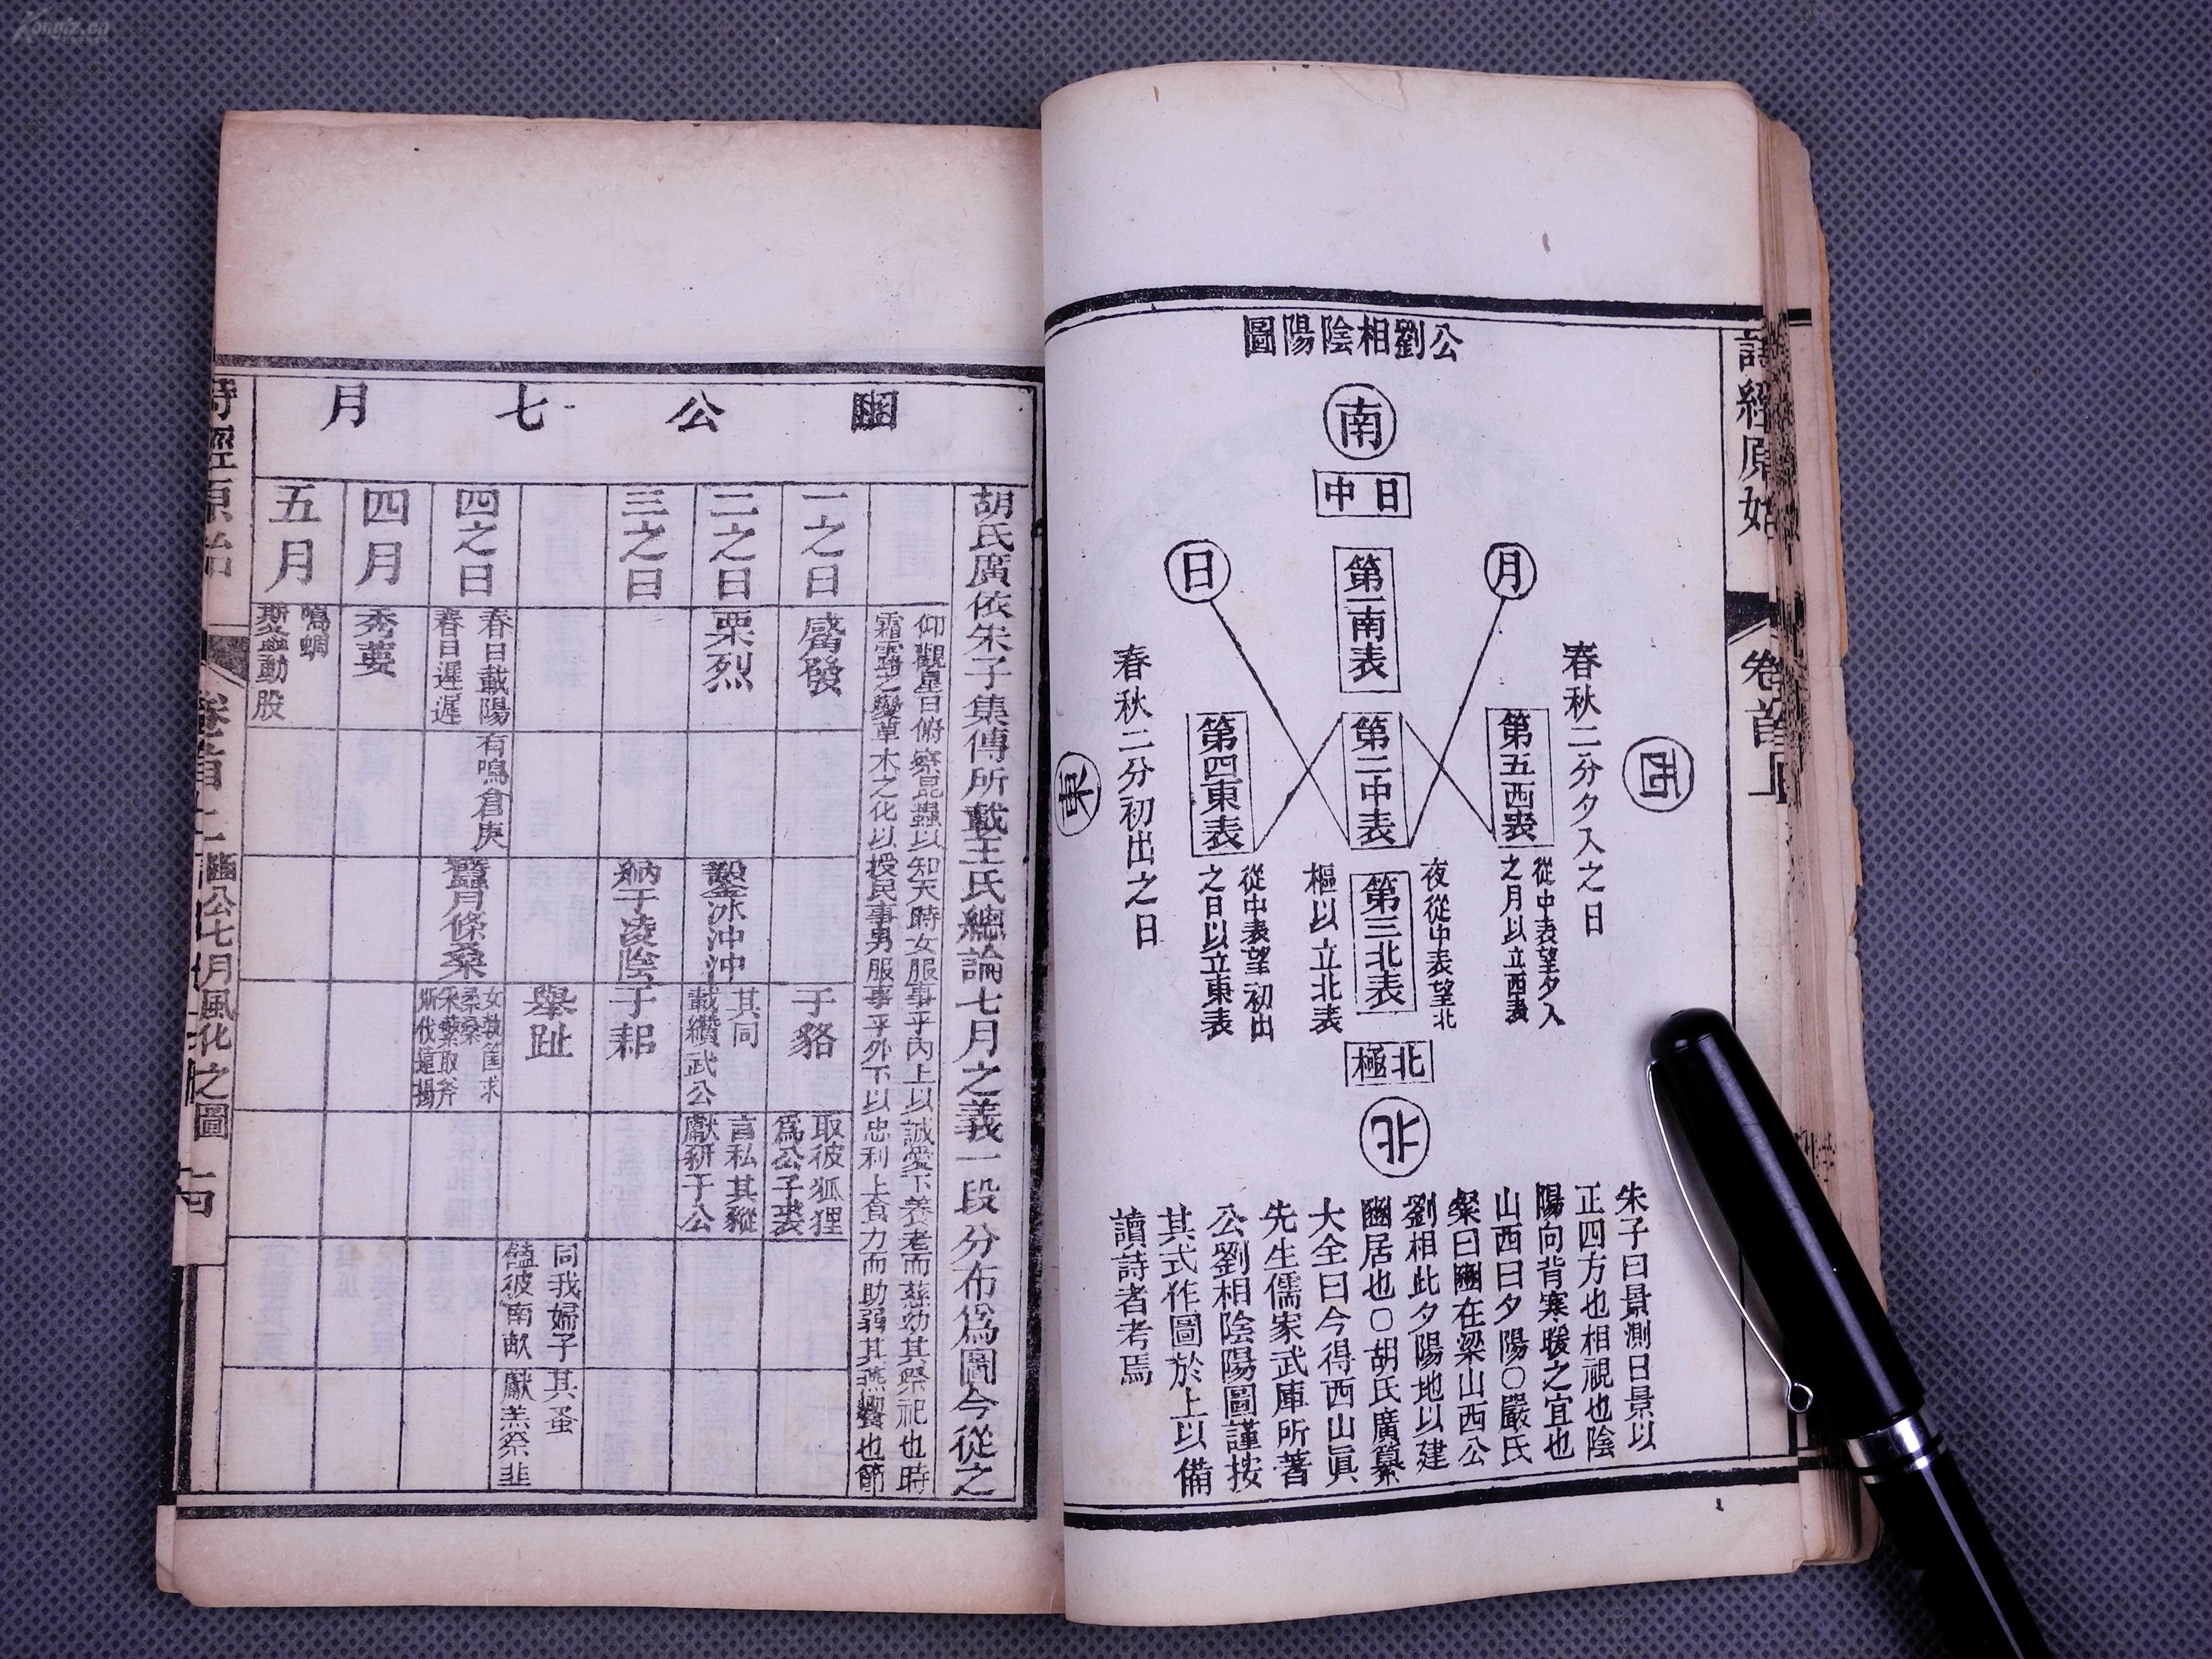 公劉相陰陽圖
南
日中
月
日
第一南表
春秋二分夕入之日
西
第五西表
從中表望夕入
之月以立西表
第二中表
第四東表
從中表望初出
之日以立東表
春秋二分初出之日
東
夜從中表望北
樞以立北表
第三北表
北極
北
朱子曰景測日景以
正四方也相視也陰
陽向背寒暖之宜也
山西曰夕陽○嚴氏
粲曰豳在梁山西公
劉相此夕陽地以建
豳居也○胡氏廣纂
大全曰今得西山眞
先生儒家武庫所著
公劉相陰陽圖謹按
其式作圖於上以備
讀詩者考焉
詩經原始
卷首上
豳公七月
胡氏廣依朱子集傳所載王氏總論七月之義一段分布爲圖今從之
仰觀星日俯察昆蟲以知天時女服事乎內上以誠愛下養老而慈幼其祭祀也時
霜露之變草木之化以授民事男服事乎外下以忠利上食力而助弱其燕饗也節
一之日
觱發
于貉
取彼狐狸
爲公子裘
二之日
栗烈
鑿冰沖沖
其同
載纘武公
言私其豵
獻豜于公
三之日
納于凌陰
于耜
舉趾
同我婦子
饁彼南畝
其蚤
獻羔祭韭
四之日
春日載陽
春日遲遲
有鳴倉庚
蠶月條桑
女執筐求
柔桑
取斧
斯伐遠揚
四月
秀葽
五月
鳴蜩
斯螽動股
詩經原始
卷首上
豳公七月風化之圖
Kongfz.cn